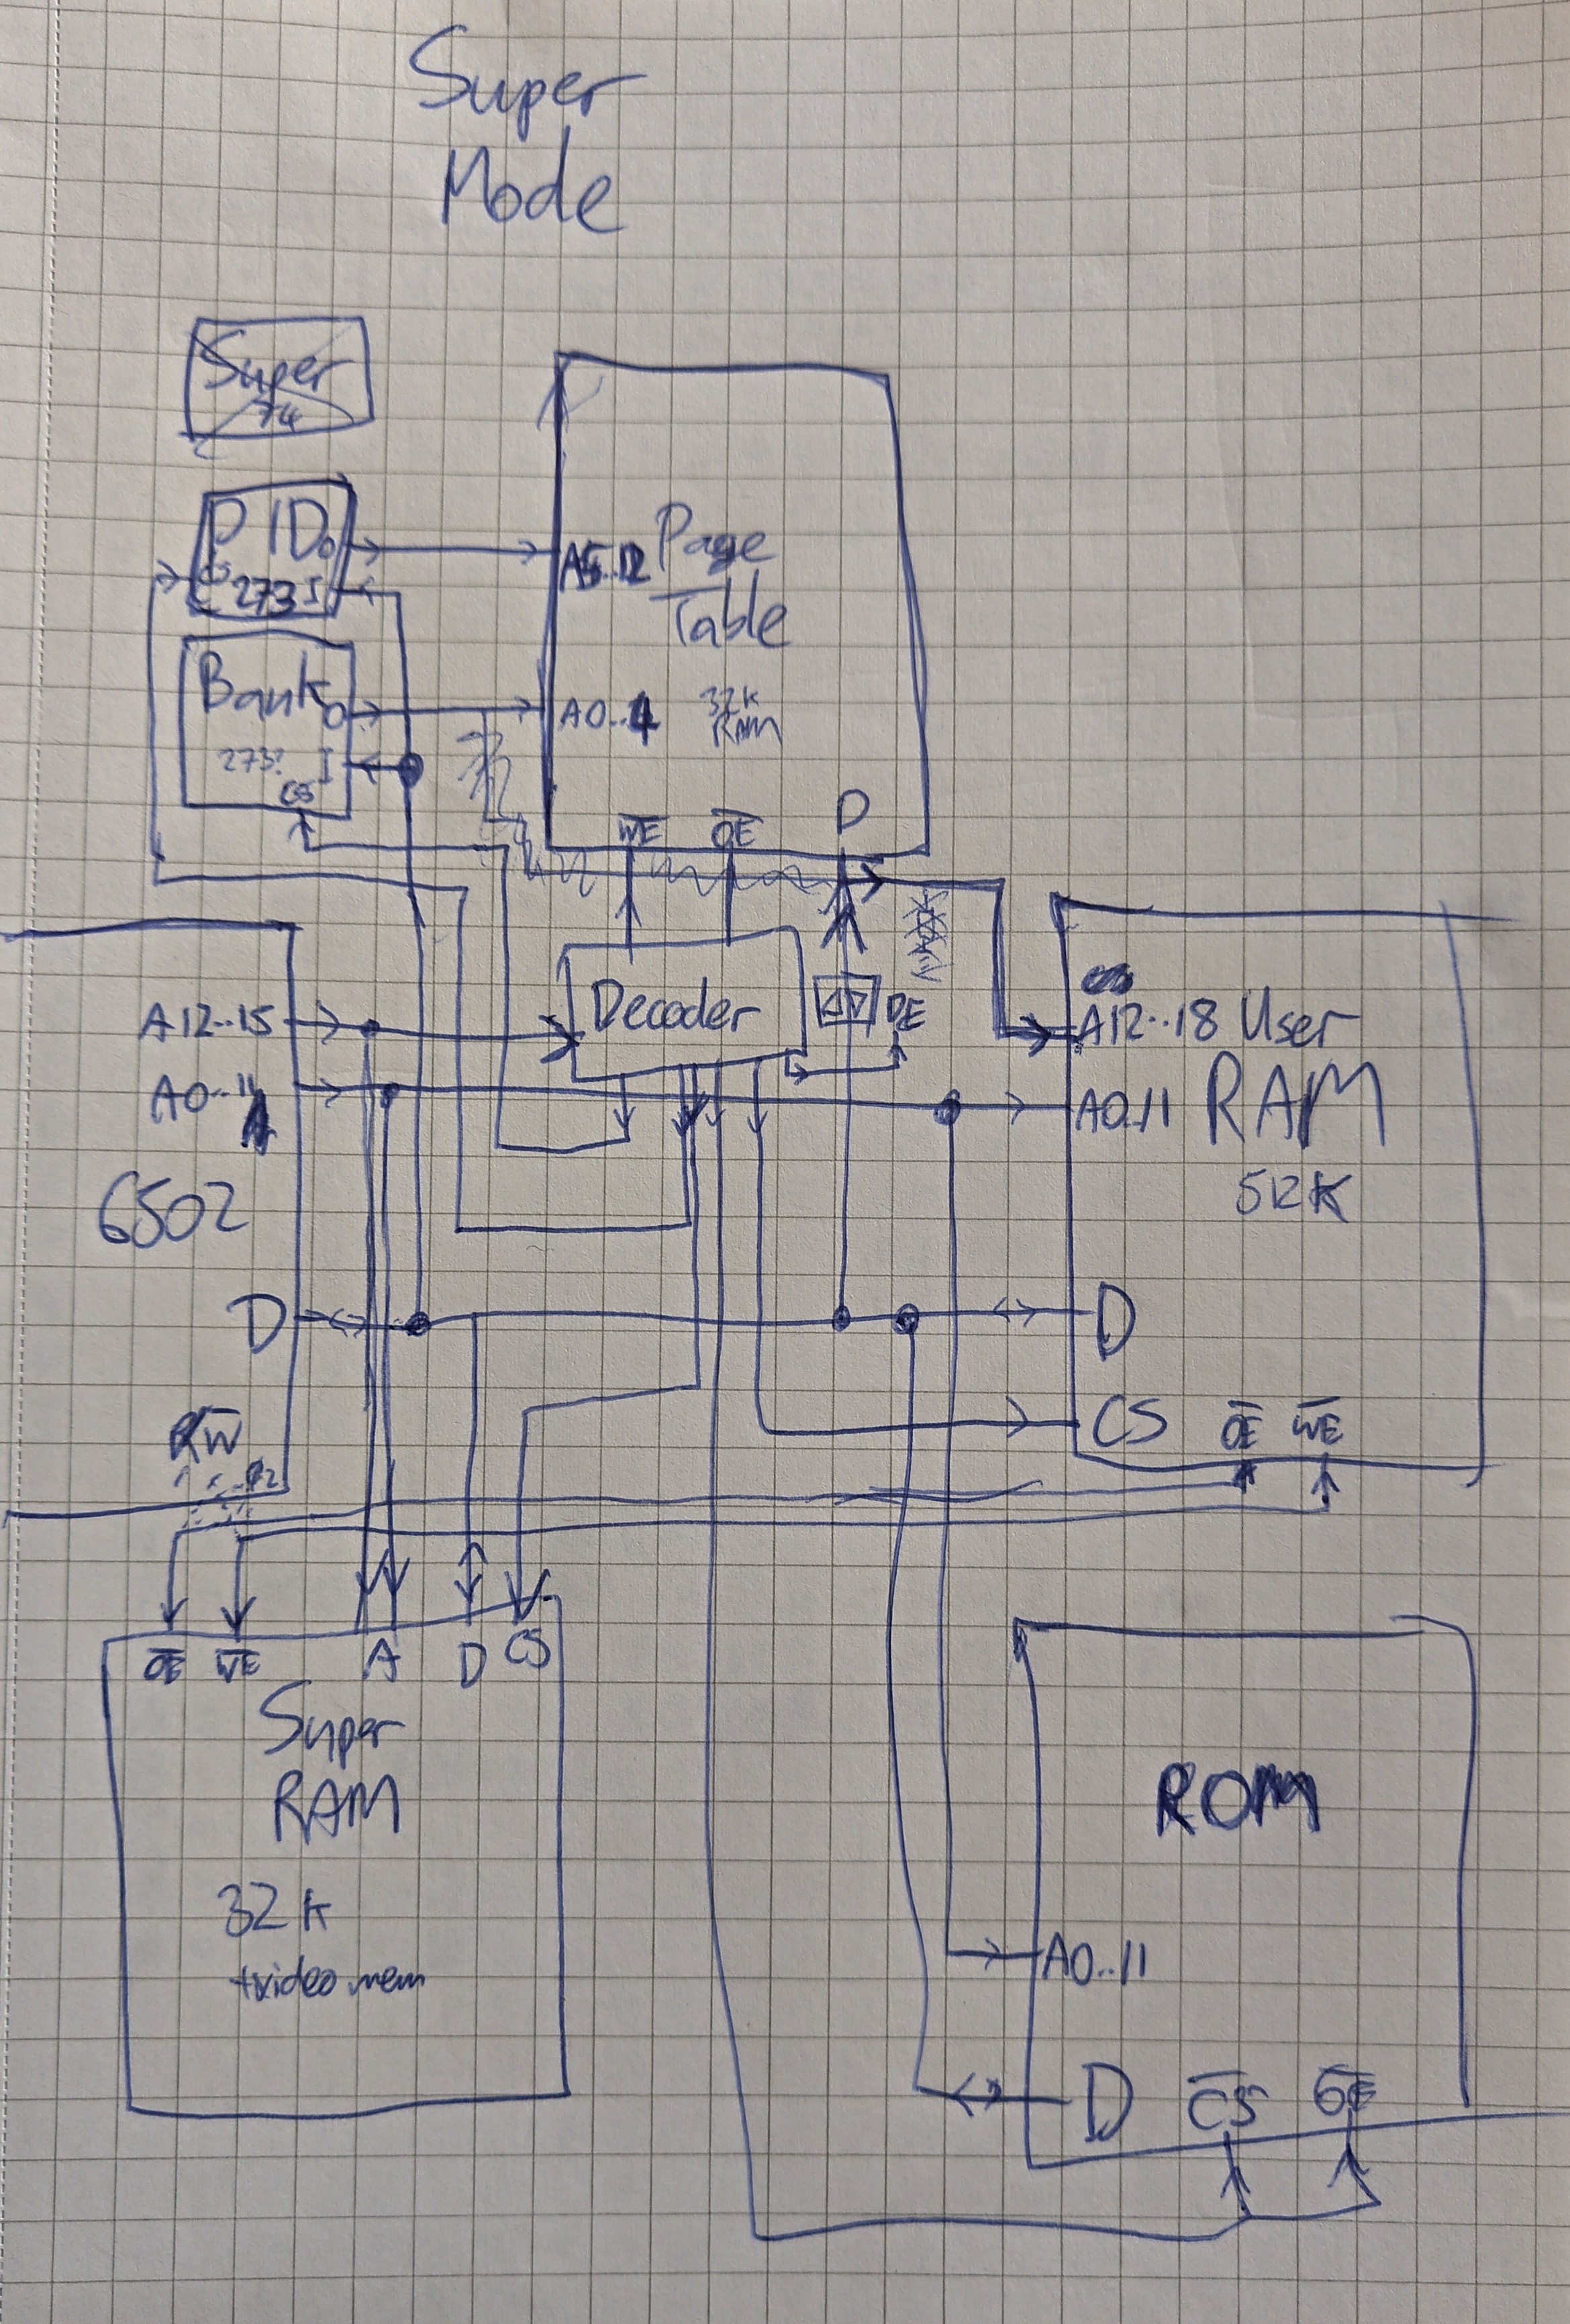 Super
Mode
Super
74
PID O
CS 273 I
Bank O
273? I
CS
A5..12
Page
Table
A0..4
32k
RAM
W̅E̅
O̅E̅
D
Decoder
OE
A12..15
A0..11
6502
D
RW̅
φ2
A12..18 User
A0..11 RAM
512K
D
CS
O̅E̅
W̅E̅
O̅E̅
W̅E̅
A
D
CS
Super
RAM
32k
+video mem
ROM
A0..11
D
C̅S̅
O̅E̅